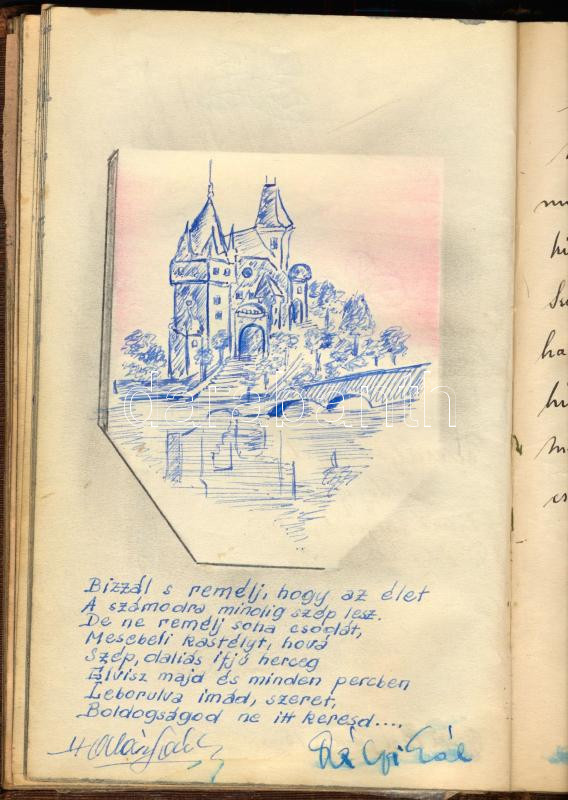 darabanth
Bizzál s remélj, hogy az élet
A számodra mindig szép lesz.
De ne remélj soha csodát,
Mesebeli kastélyt, hová
Szép, daliás ifjú herceg
Elvisz majd és minden percben
Leborulva imád, szeret,
Boldogságod ne itt keresd....